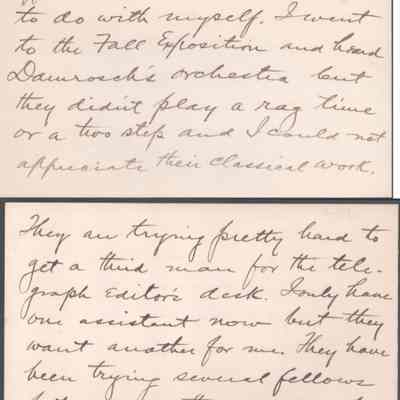 to do with myself. I went
to the Fall Exposition and heard
Damrosch's orchestra but
they didn't play a rag time
or a two step and I could not
appreciate their classical work.
They are trying pretty hard to
get a third man for the tele-
graph Editor's desk. I only have
one assistant now but they
want another for me. They have
been trying several fellows